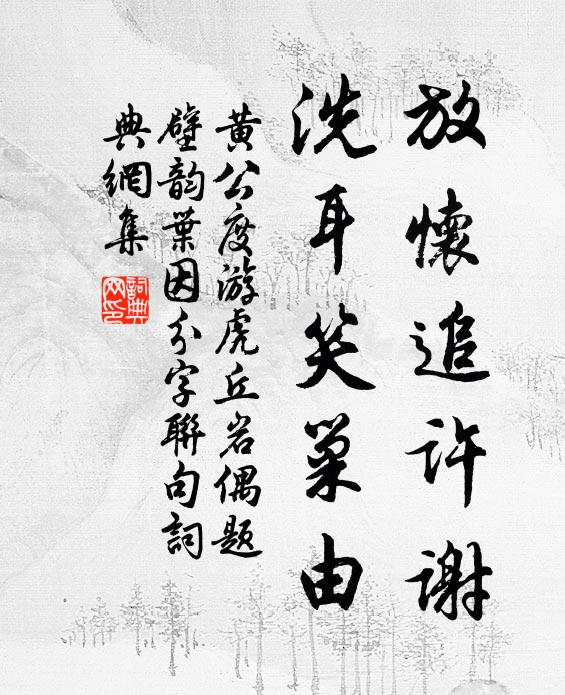 放懷追許謝
洗耳笑巢由
黃公度游虎丘岩偶題
壁韵葉因分字聯句詞
典網集
詞典
网印